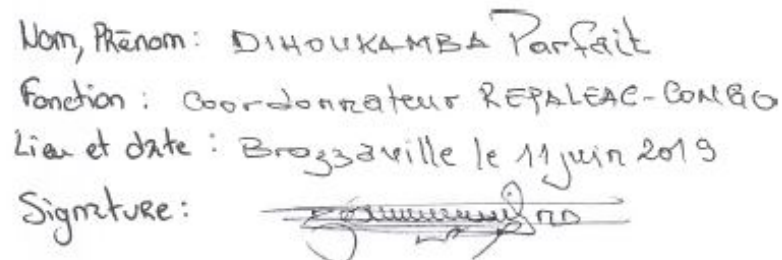 Nom, Prénom: DIHOUKAMBA Parfait
Fonction : Coordonnateur REPALEAC-CONGO
Lieu et date : Brazzaville le 11 juin 2019
Signature: